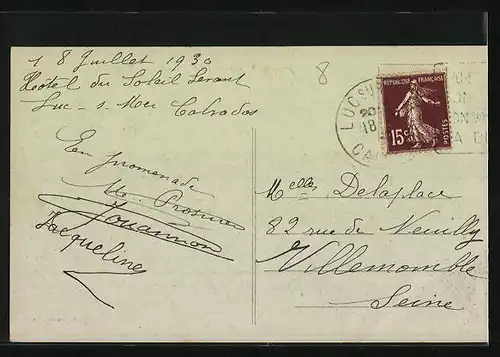 18 Juillet 1930
Hôtel du Soleil Levant
Luc-s-Mer Calvados
8
En promenade
Jouannon
Jacqueline
LUC S
20
18
CA
REPUBLIQUE FRANÇAISE
15c
POSTES
Melles Delaplace
82 rue de Neuilly
Villemomble
Seine